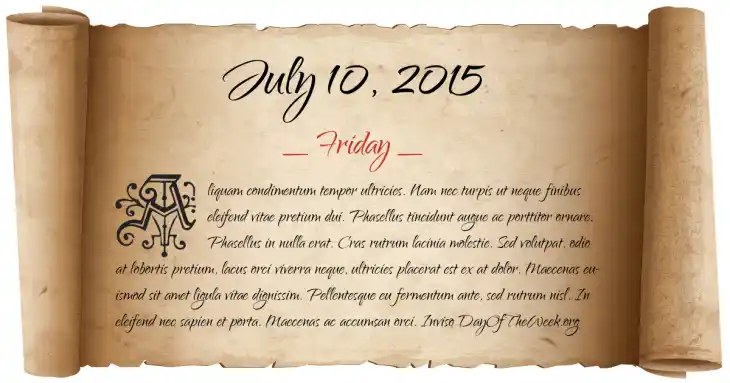 July 10, 2015
__ Friday __
Aliquam condimentum tempor ultricies. Nam nec turpis ut neque finibus
eleifend vitae pretium dui. Phasellus tincidunt augue ac porttitor ornare.
Phasellus in nulla erat. Cras rutrum lacinia molestie. Sed volutpat, odio
at lobortis pretium, lacus orci viverra neque, ultricies placerat est ex at dolor. Maecenas eu-
ismod sit amet ligula vitae dignissim. Pellentesque eu fermentum ante, sed rutrum nisl. In
eleifend nec sapien et porta. Maecenas ac accumsan orci. Inviso DayOfTheWeek.org